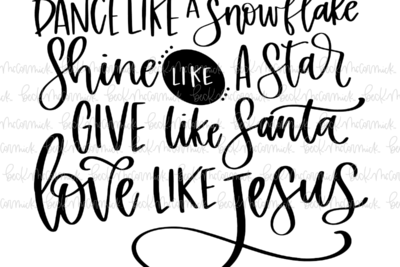 DANCE LIKE A Snowflake
Shine LIKE A Star
GIVE like Santa
love LIKE Jesus